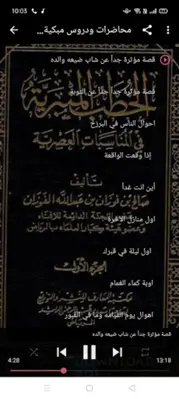 10:03
محاضرات ودروس مبكية...
قصة مؤثرة جداً عن شاب ضيعه والده
الخطب المنبرية
قصة مؤثرة جداً جداً عن التوبة
في المناسبات العصرية
احوال الناس في البرزخ
إذا وقعت الواقعة
تأليف
أين انت غداً
صالح بن فوزان بن عبدالله الفوزان
اول منازل الاخرة
اول ليلة في قبرك
الجزء الأول
اوبة كماء الغمام
اهوال يوم القيامة وما في القبور
قصة مؤثرة جداً عن شاب ضيعه والده
4:28
13:18